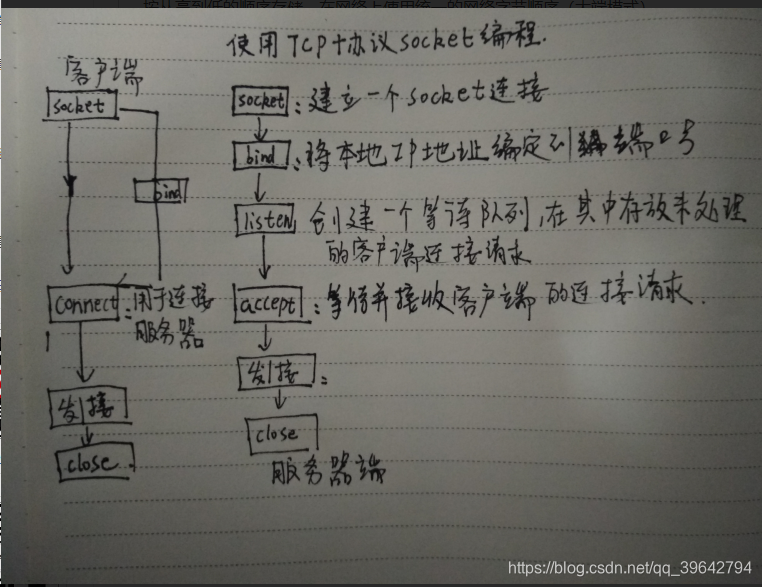 按从高到低的顺序存储，在网络上使用统一的网络字节顺序（大端模式）
使用TCP协议socket编程.
客户端
socket
bind
connect：用于连接
服务器
发|接
close
socket：建立一个socket连接
bind：将本地IP地址编定到端口号
listen 创建一个等待队列，在其中存放未处理
的客户端连接请求
accept：等待并接收客户端的连接请求.
发|接：
close
服务器端
https://blog.csdn.net/qq_39642794